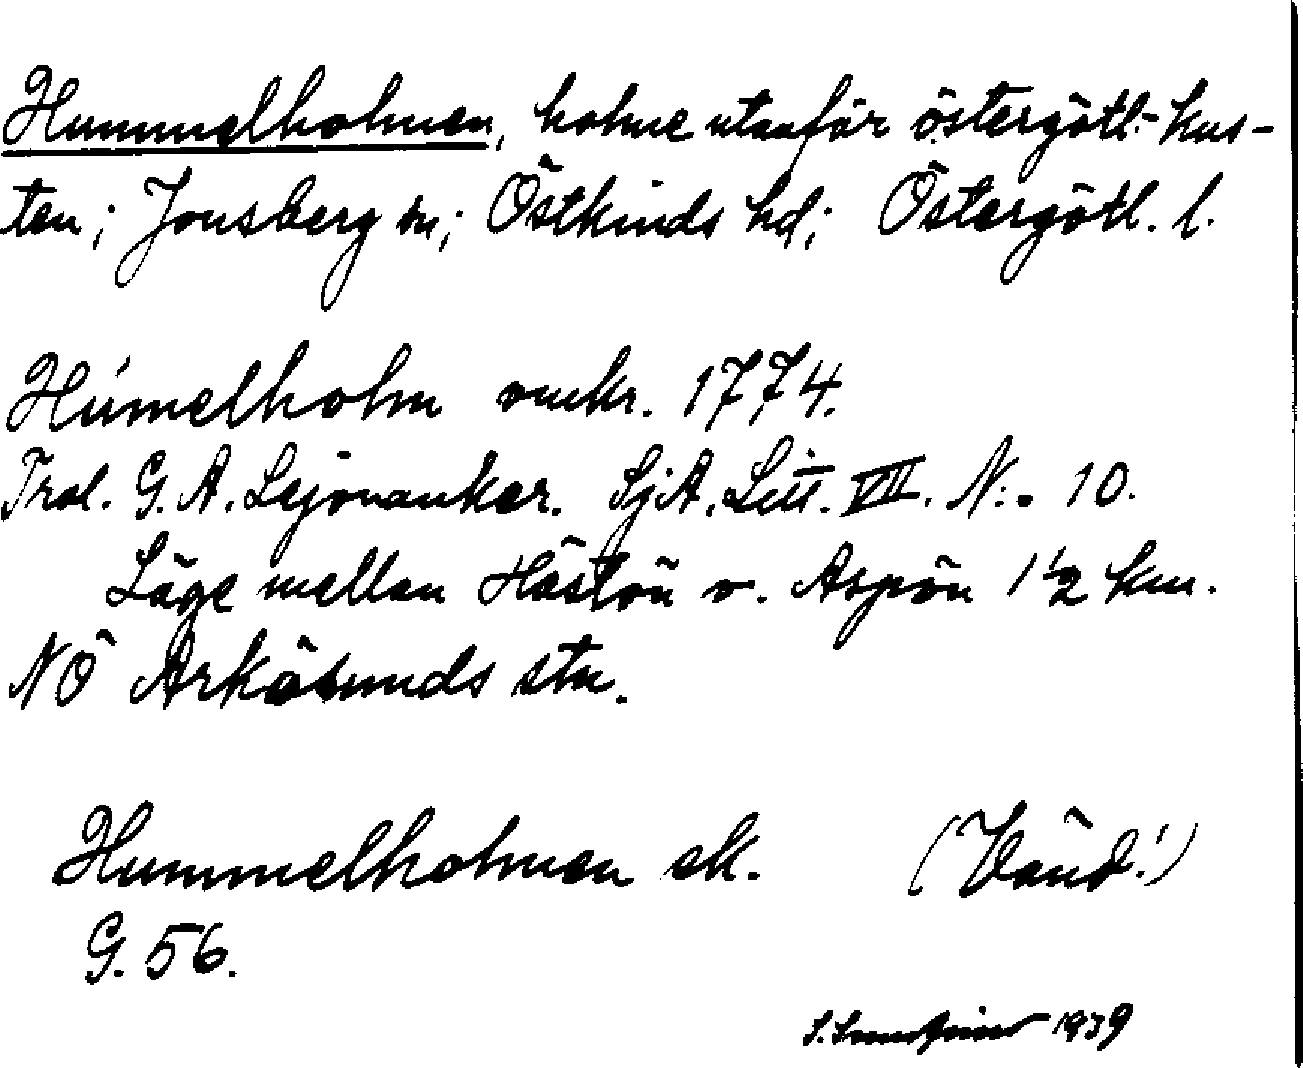 Hummelholmen, holme utanför östergötl.-kus-
ten; Jonsberg sn; Östkinds hd; Östergötl. l.
Húmelholm omkr. 1774.
Trol. G. A. Lejonanker. SjA. Litt. VII. N:. 10.
Läge mellan Hästön o. Aspön 1 1/2 km.
NÖ Arkösunds stn.
Hummelholmen ek. (Vänd!)
G. 56.
1939